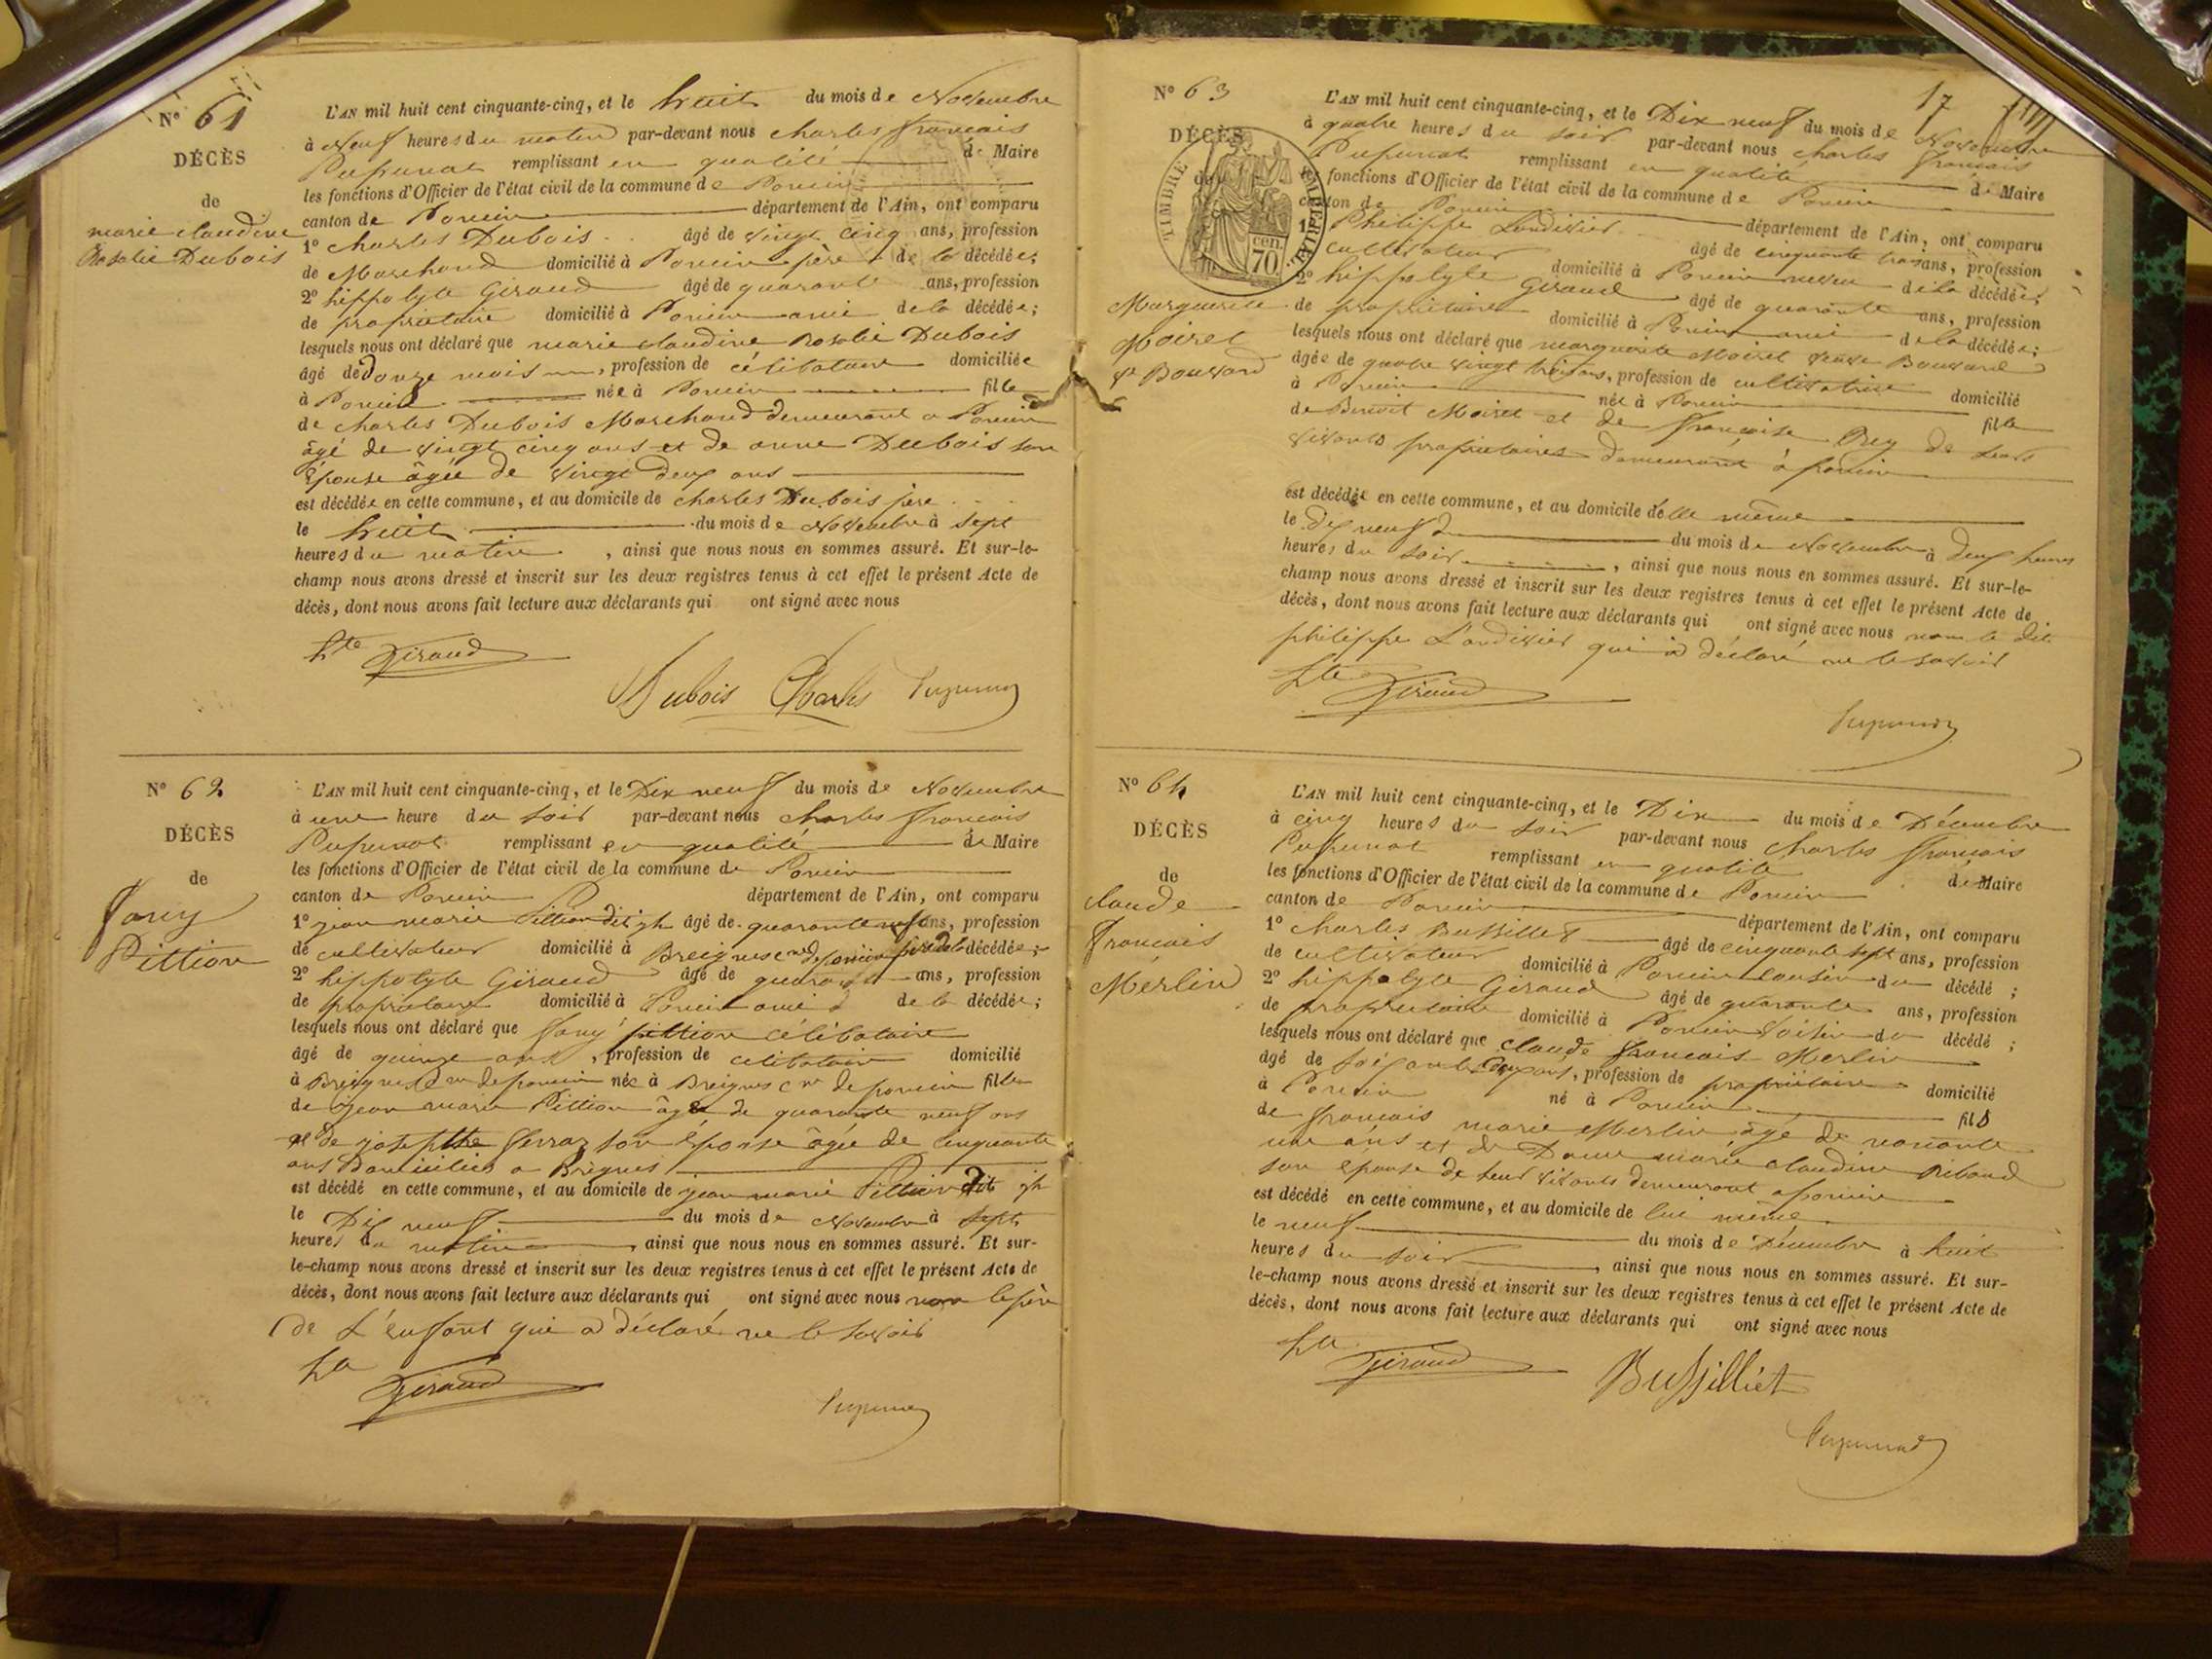 N° 61
DÉCÈS
de
marie claudine
Rosalie Dubois
L'AN mil huit cent cinquante-cinq, et le huit du mois de Novembre
à Neuf heures du matin par-devant nous charles françois
Pupunat remplissant en qualité de Maire
les fonctions d'Officier de l'état civil de la commune de Poncin
canton de Poncin département de l'Ain, ont comparu
1° charles Dubois âgé de vingt cinq ans, profession
de Marchand domicilié à Poncin père de la décédée;
2° hippolyte Giraud âgé de quarante ans, profession
de propriétaire domicilié à Poncin ami de la décédée;
lesquels nous ont déclaré que marie claudine Rosalie Dubois
âgé de douze mois, profession de célibataire domiciliée
à Poncin née à Poncin fille
de charles Dubois Marchand demeurant a Poncin
âgé de vingt cinq ans et de anne Dubois son
Epouse âgée de vingt deux ans
est décédée en cette commune, et au domicile de charles Dubois père
le huit du mois de Novembre à sept
heures du matin, ainsi que nous nous en sommes assuré. Et sur-le-
champ nous avons dressé et inscrit sur les deux registres tenus à cet effet le présent Acte de
décès, dont nous avons fait lecture aux déclarants qui ont signé avec nous
hte Giraud
Dubois Charles Pupunat
N° 62
DÉCÈS
de
fany
Pittion
L'AN mil huit cent cinquante-cinq, et le Dix neuf du mois de Novembre
à une heure du soir par-devant nous charles françois
Pupunat remplissant en qualité de Maire
les fonctions d'Officier de l'état civil de la commune de Poncin
canton de Poncin département de l'Ain, ont comparu
1° jean marie Pittion dit âgé de quarante neuf ans, profession
de cultivateur domicilié à Breignes de poncin père de la décédée;
2° hippolyte Giraud âgé de quarante ans, profession
de propriétaire domicilié à Poncin ami de la décédée;
lesquels nous ont déclaré que fany pittion célibataire
âgé de quinze ans, profession de célibataire domicilié
à Breignes de poncin née à Breignes de poncin fille
de jean marie Pittion âgé de quarante neuf ans
et de josephthe ferraz son Epouse âgée de cinquante
ans Domiciliés a Brègnes
est décédé en cette commune, et au domicile de jean marie Pittion dit
le Dix neuf du mois de Novembre à sept
heures du matin, ainsi que nous nous en sommes assuré. Et sur-
le-champ nous avons dressé et inscrit sur les deux registres tenus à cet effet le présent Acte de
décès, dont nous avons fait lecture aux déclarants qui ont signé avec nous non le père
de L'enfant qui a déclaré ne le savoir
Giraud
Pupunat
17
N° 63
DÉCÈS
de
TIMBRE IMPERIAL
70 cen.
Marguerite
Moiret
ve Bouvard
L'AN mil huit cent cinquante-cinq, et le Dix neuf du mois de Novembre
à quatre heures du soir par-devant nous charles françois
Pupunat remplissant en qualité de Maire
les fonctions d'Officier de l'état civil de la commune de Poncin
canton de Poncin département de l'Ain, ont comparu
1° Philippe Landivier âgé de cinquante trois ans, profession
cultivateur domicilié à Poncin neveu de la décédée;
2° hippolyte Giraud âgé de quarante ans, profession
de propriétaire domicilié à Poncin ami de la décédée;
lesquels nous ont déclaré que marguerite Moiret veuve Bouvard
âgée de quatre vingt trois ans, profession de cultivatrice domicilié
à Poncin née à Poncin fille
de Benoit Moiret et de françoise Rey de leurs
vivants propriétaires demeurant à poncin
est décédée en cette commune, et au domicile d'elle même
le dix neuf du mois de Novembre à deux heures
heures du soir, ainsi que nous nous en sommes assuré. Et sur-le-
champ nous avons dressé et inscrit sur les deux registres tenus à cet effet le présent Acte de
décès, dont nous avons fait lecture aux déclarants qui ont signé avec nous non le dit
philippe Landivier qui a déclaré ne le savoir
hte Giraud
Pupunat
N° 64
DÉCÈS
de
claude
françois
Merlin
L'AN mil huit cent cinquante-cinq, et le Dix du mois de Décembre
à cinq heures du soir par-devant nous charles françois
Pupunat remplissant en qualité de Maire
les fonctions d'Officier de l'état civil de la commune de Poncin
canton de Poncin département de l'Ain, ont comparu
1° charles Bussillet âgé de cinquante sept ans, profession
de cultivateur domicilié à Poncin cousin du décédé;
2° hippolyte Giraud âgé de quarante ans, profession
de propriétaire domicilié à Poncin voisin du décédé;
lesquels nous ont déclaré que claude françois Merlin
âgé de soixante ans, profession de propriétaire domicilié
à Poncin né à Poncin fils
de françois marie Merlin âgé de nonante
une ans et de Dame marie claudine Ribaud
son épouse de leur vivants demeurant a poncin
est décédé en cette commune, et au domicile de lui même
le neuf du mois de Décembre à huit
heures du soir, ainsi que nous nous en sommes assuré. Et sur-
le-champ nous avons dressé et inscrit sur les deux registres tenus à cet effet le présent Acte de
décès, dont nous avons fait lecture aux déclarants qui ont signé avec nous
Giraud
Bussilliet
Pupunat